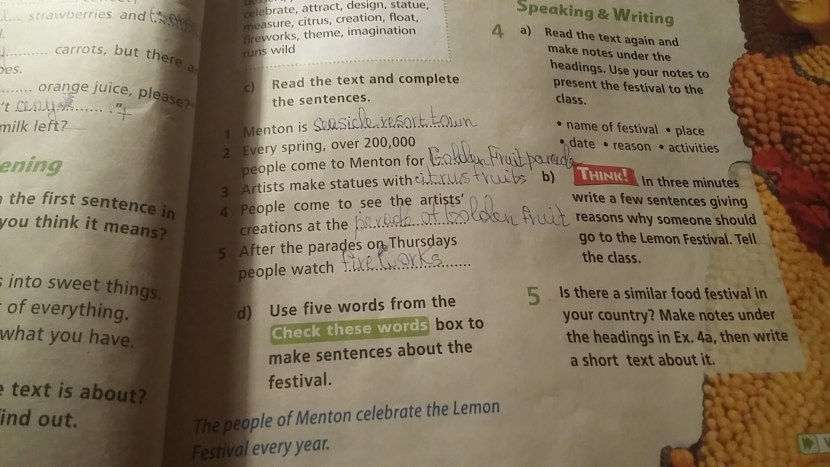 strawberries and
carrots, but there a
oes.
orange juice, please?
't any
milk left?
ening
the first sentence in
you think it means?
into sweet things.
of everything.
what you have.
text is about?
ind out.
celebrate, attract, design, statue,
measure, citrus, creation, float,
fireworks, theme, imagination
runs wild
c) Read the text and complete
the sentences.
1 Menton is seaside resort town
2 Every spring, over 200,000
people come to Menton for Golden Fruit parade
3 Artists make statues with citrus fruits
4 People come to see the artists'
creations at the parade of Golden fruit
5 After the parades on Thursdays
people watch fireworks
d) Use five words from the
Check these words box to
make sentences about the
festival.
The people of Menton celebrate the Lemon
Festival every year.
Speaking & Writing
4 a) Read the text again and
make notes under the
headings. Use your notes to
present the festival to the
class.
• name of festival • place
• date • reason • activities
b) THINK! In three minutes
write a few sentences giving
reasons why someone should
go to the Lemon Festival. Tell
the class.
5 Is there a similar food festival in
your country? Make notes under
the headings in Ex. 4a, then write
a short text about it.